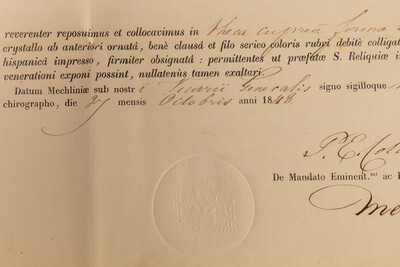 reverenter reposuimus et collocavimus in theca cuprea forma
crystallo ab anteriori ornatâ, benè clausâ et filo serico coloris rubri debitè colligat
hispanicâ impresso, firmiter obsignatâ: permittentes ut præfatæ S. Reliquiæ i
venerationi exponi possint, nullatenùs tamen exaltari.
Datum Mechliniæ sub nostr i Vicarii Generalis signo sigilloque
chirographo, die 27 mensis Octobris anni 1848
P. E.
De Mandato Eminent.mi ac